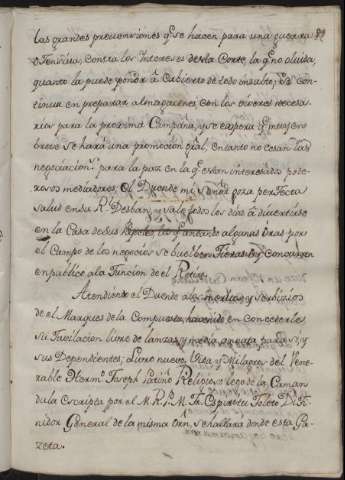 las grandes prevenciones q.e se hacen para una guerra
ofensiva, contra los Intereses desta Corte, la q.e no olvida,
quanto la puede poner a Cubierto de todo insulto; se con-
tinua en preparar almagacenes con los viveres necesa-
rios para la proxima Campaña, y se espera q.e muy en
breve se hará una promocion gral, en tanto no cesan las
negociacion.s para la paz en la q.e estan interesados pode-
rosos mediadores; el Duende mi s.or goza perfecta
salud en su R.l Desban, y sale todos los dias a divertirse
en la Casa de sus
por
el Campo de los negocios se buelben Fieras, y Concurren
en publico a la funcion de el Retiro.
Atendiendo el Duende a los meritos y servicios
de el Marques de la Compuesta, ha venido en Concederle
su Jubilacion libre de lanzas y media annata para si, y
sus Dependientes; Libro nuevo, Vida y Milagros del Vene-
rable Herm.o Joseph Patiño Religioso lego de la Caman-
dula Escripta por el M.R.P.M. Fr.
General de la misma Orn, se hallara donde esta Ga-
zeta.